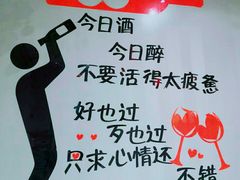 今日酒
今日醉
不要活得太疲惫
好也过
歹也过
只求心情还
不错